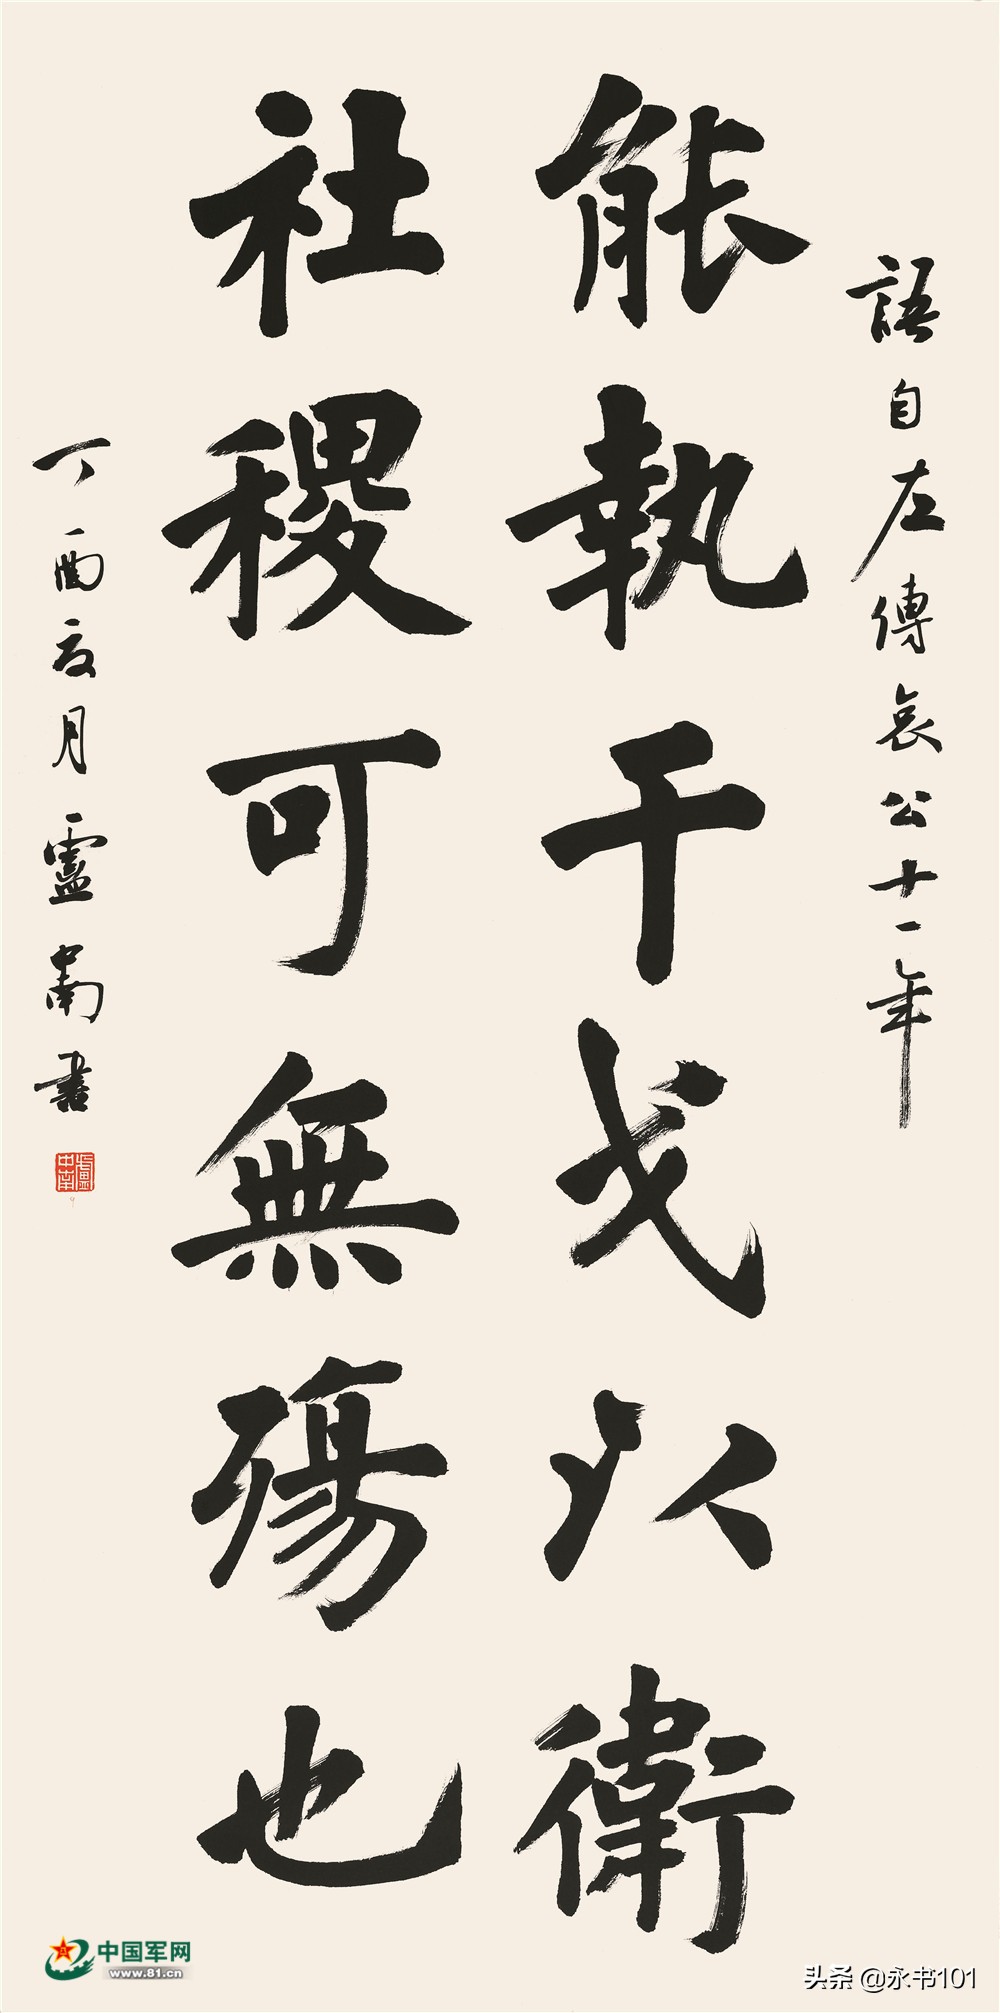 能執干戈以衛
社稷可無殤也
語自左傳哀公十一年
丁酉夏月盧中南書
盧中南
中国军网
www.81.cn
头条 @永书101